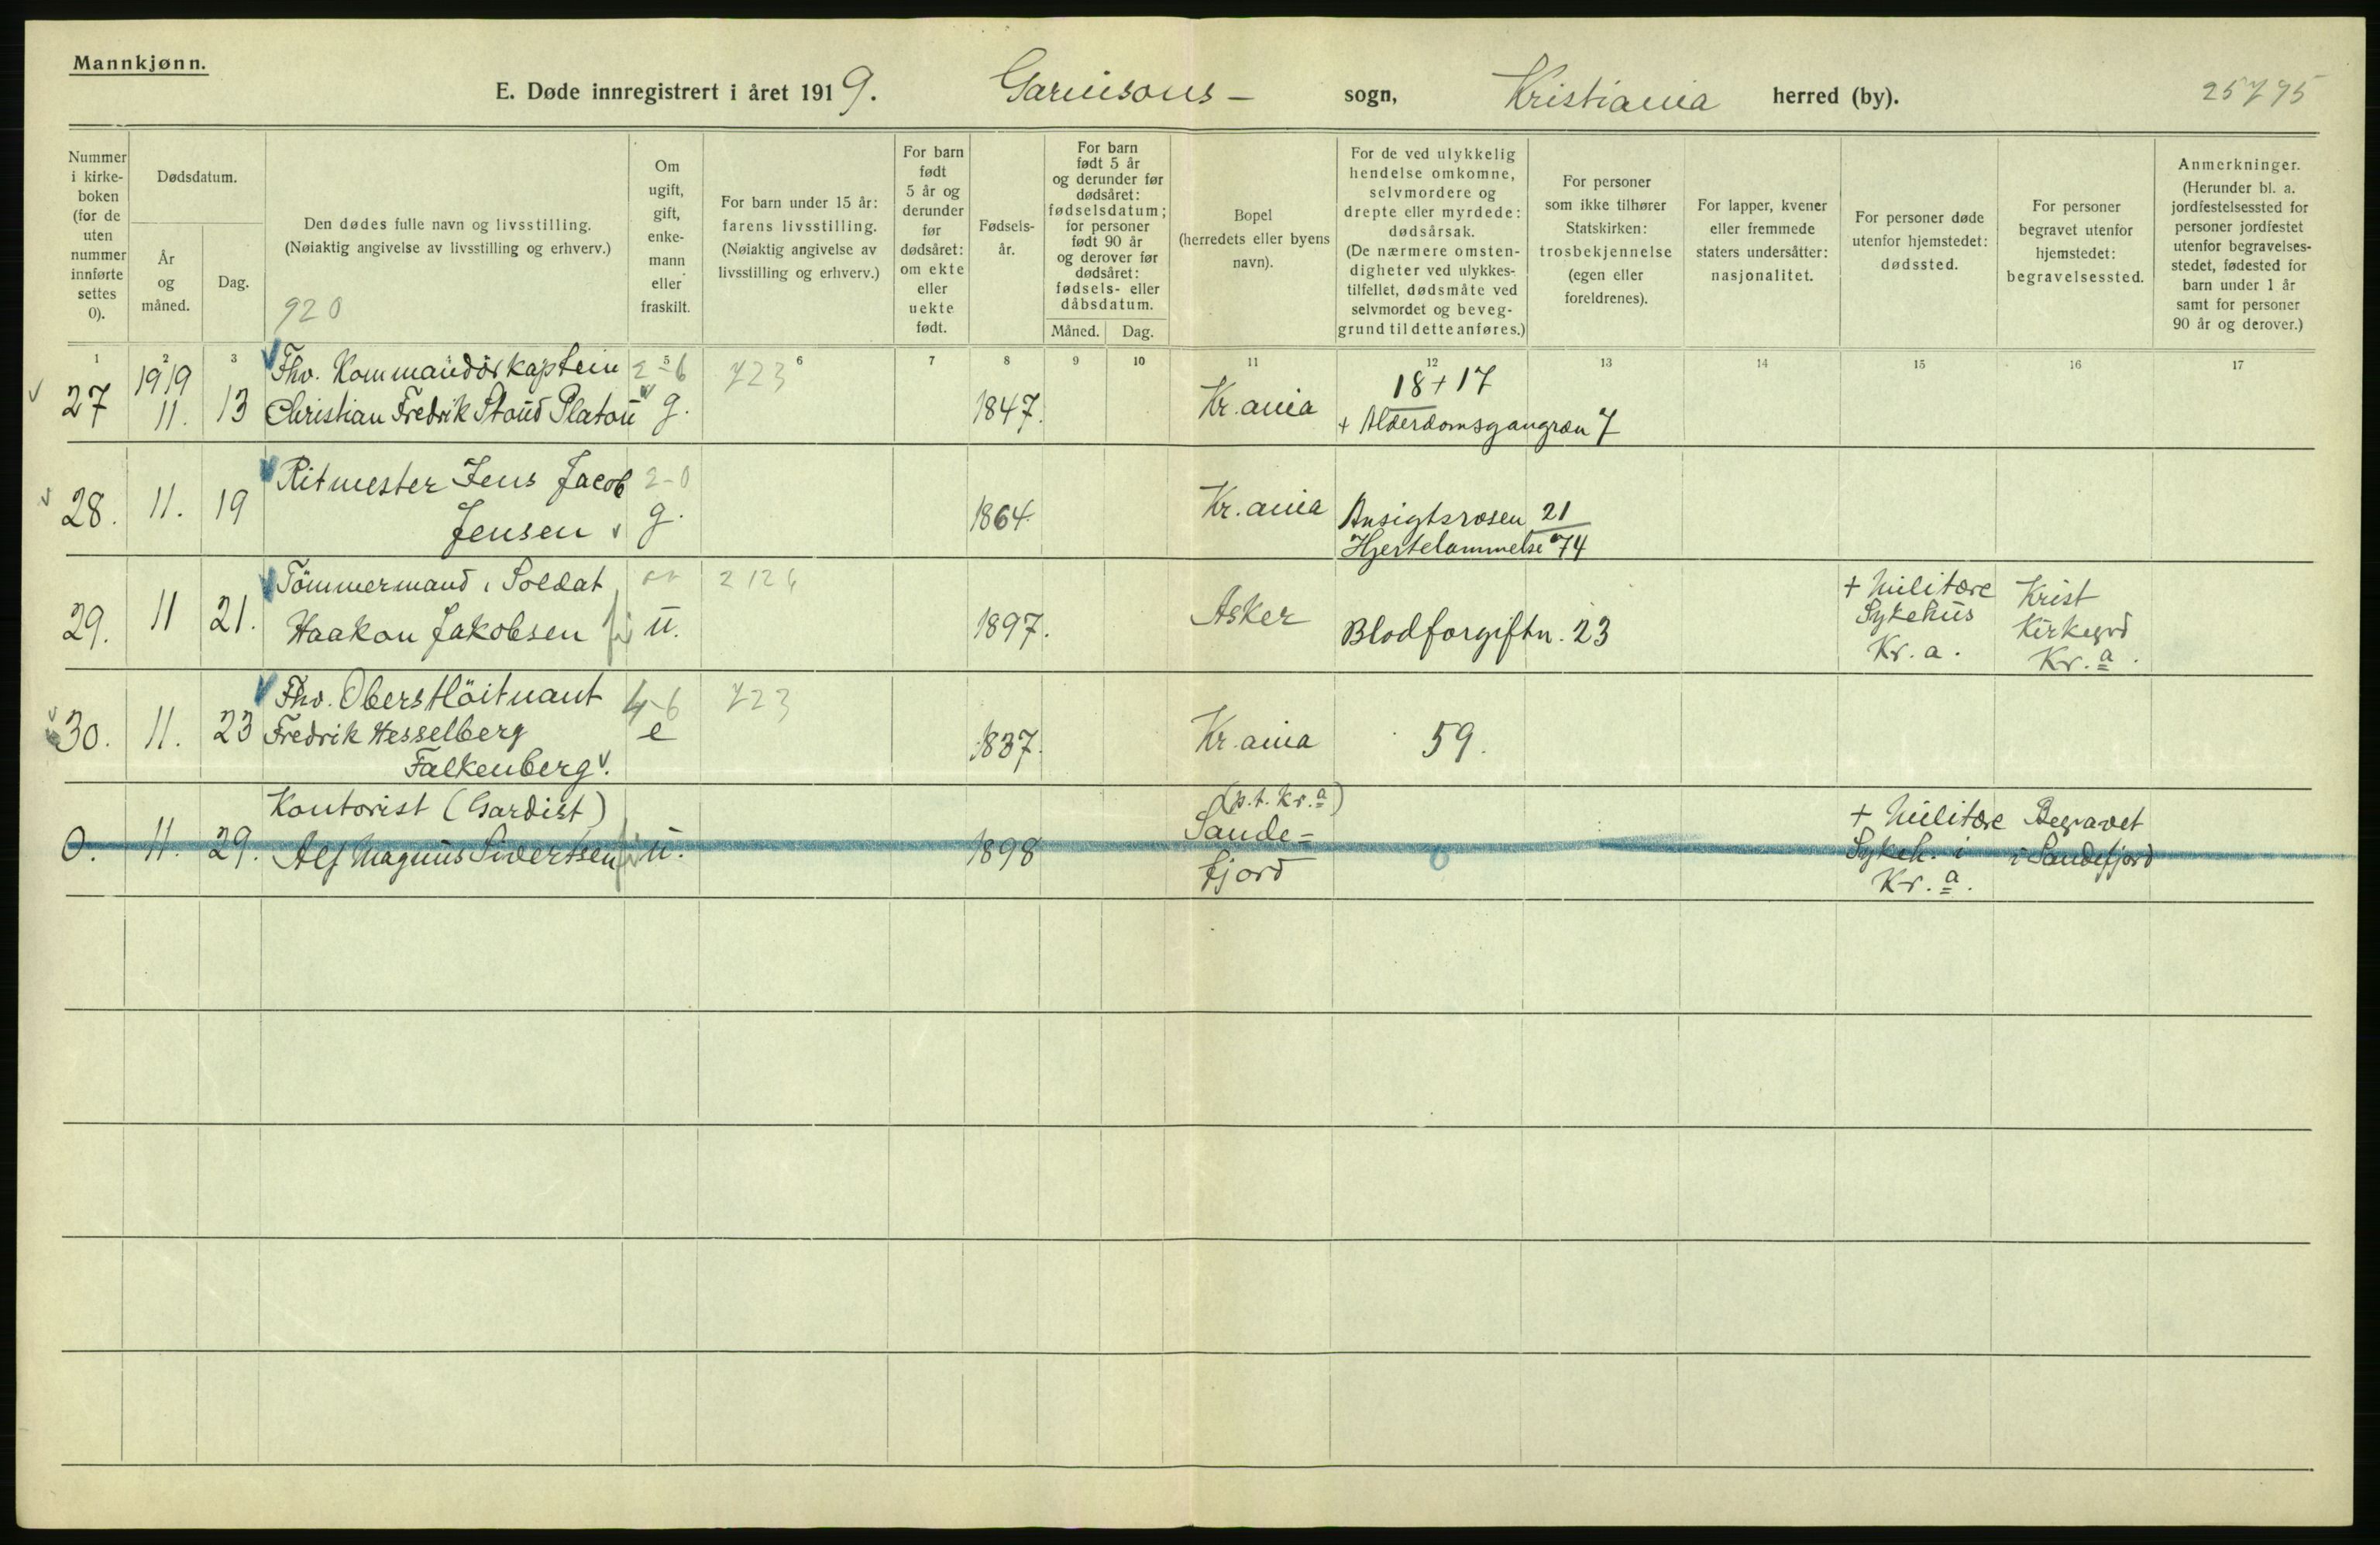 Mannkjønn.
E. Døde innregistrert i året 1919. Garnisons- sogn, Kristiania herred (by). 25795
Nummer i kirkeboken (for de uten nummer innførte settes 0).
Dødsdatum.
År og måned.
Dag.
Den dødes fulle navn og livsstilling.
(Nøiaktig angivelse av livsstilling og erhverv.)
920
Om ugift, gift, enkemann eller fraskilt.
For barn under 15 år: farens livsstilling.
(Nøiaktig angivelse av livsstilling og erhverv.)
For barn født 5 år og derunder før dødsåret: om ekte eller uekte født.
Fødsels-år.
For barn født 5 år og derunder før dødsåret: fødselsdatum; for personer født 90 år og derover før dødsåret: fødsels- eller dåbsdatum.
Måned. Dag.
Bopel (herredets eller byens navn).
For de ved ulykkelig hendelse omkomne, selvmordere og drepte eller myrdede: dødsårsak.
(De nærmere omstendigheter ved ulykkestilfellet, dødsmåte ved selvmordet og beveggrund til dette anføres.)
For personer som ikke tilhører Statskirken: trosbekjennelse (egen eller foreldrenes).
For lapper, kvener eller fremmede staters undersåtter: nasjonalitet.
For personer døde utenfor hjemstedet: dødssted.
For personer begravet utenfor hjemstedet: begravelsessted.
Anmerkninger.
(Herunder bl. a. jordfestelsessted for personer jordfestet utenfor begravelsesstedet, fødested for barn under 1 år samt for personer 90 år og derover.)
1 2 3 5 6 7 8 9 10 11 12 13 14 15 16 17
27 1919 11. 13 Fhv. Kommandörkaptein Christian Fredrik Stoud Platou 2-6 g. 723 1847. Kr.ania 18+17 + Alderdomsgangræn 7
28. 11. 19 Ritmester Jens Jacob Jensen 2-0 g. 1864. Kr.ania Ansigtsrosen 21 Hjertelammelse 74
29. 11 21. Tömmermand, Soldat Haakon Jakobsen u. 2126 1897. Asker Blodforgiftn. 23 + Militære Sykehus Kr.a. Krist Kirkegrd Kr.a.
30. 11. 23 Fhv. Oberstlöitnant Fredrik Hesselberg Falkenberg. 4-6 e 723 1837. Kr.ania 59.
0. 11. 29. Kontorist (Gardist) Alf Magnus Sivertsen u. 1898 (p.t. Kr.a) Sande=fjord 0 + Militære Sykeh. i Kr.a. Begravet i Sandefjord